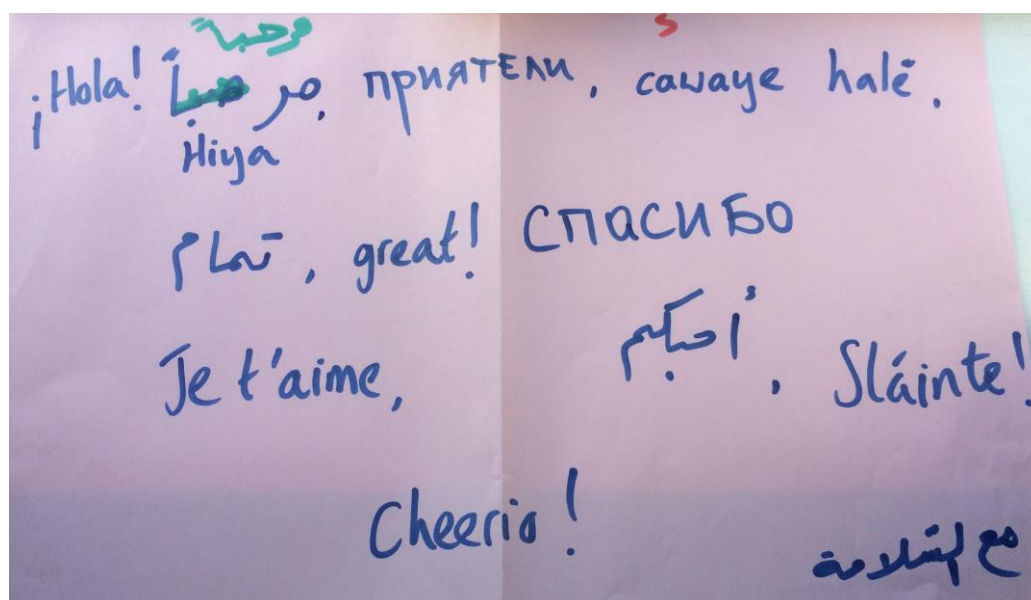 مرحبة s
¡Hola! приятели, cawaye halē.
Hiya
تمام, great! СПАСИБО
Je t'aime, أُحبكم, Sláinte!
Cheerio!
مع السّلامة